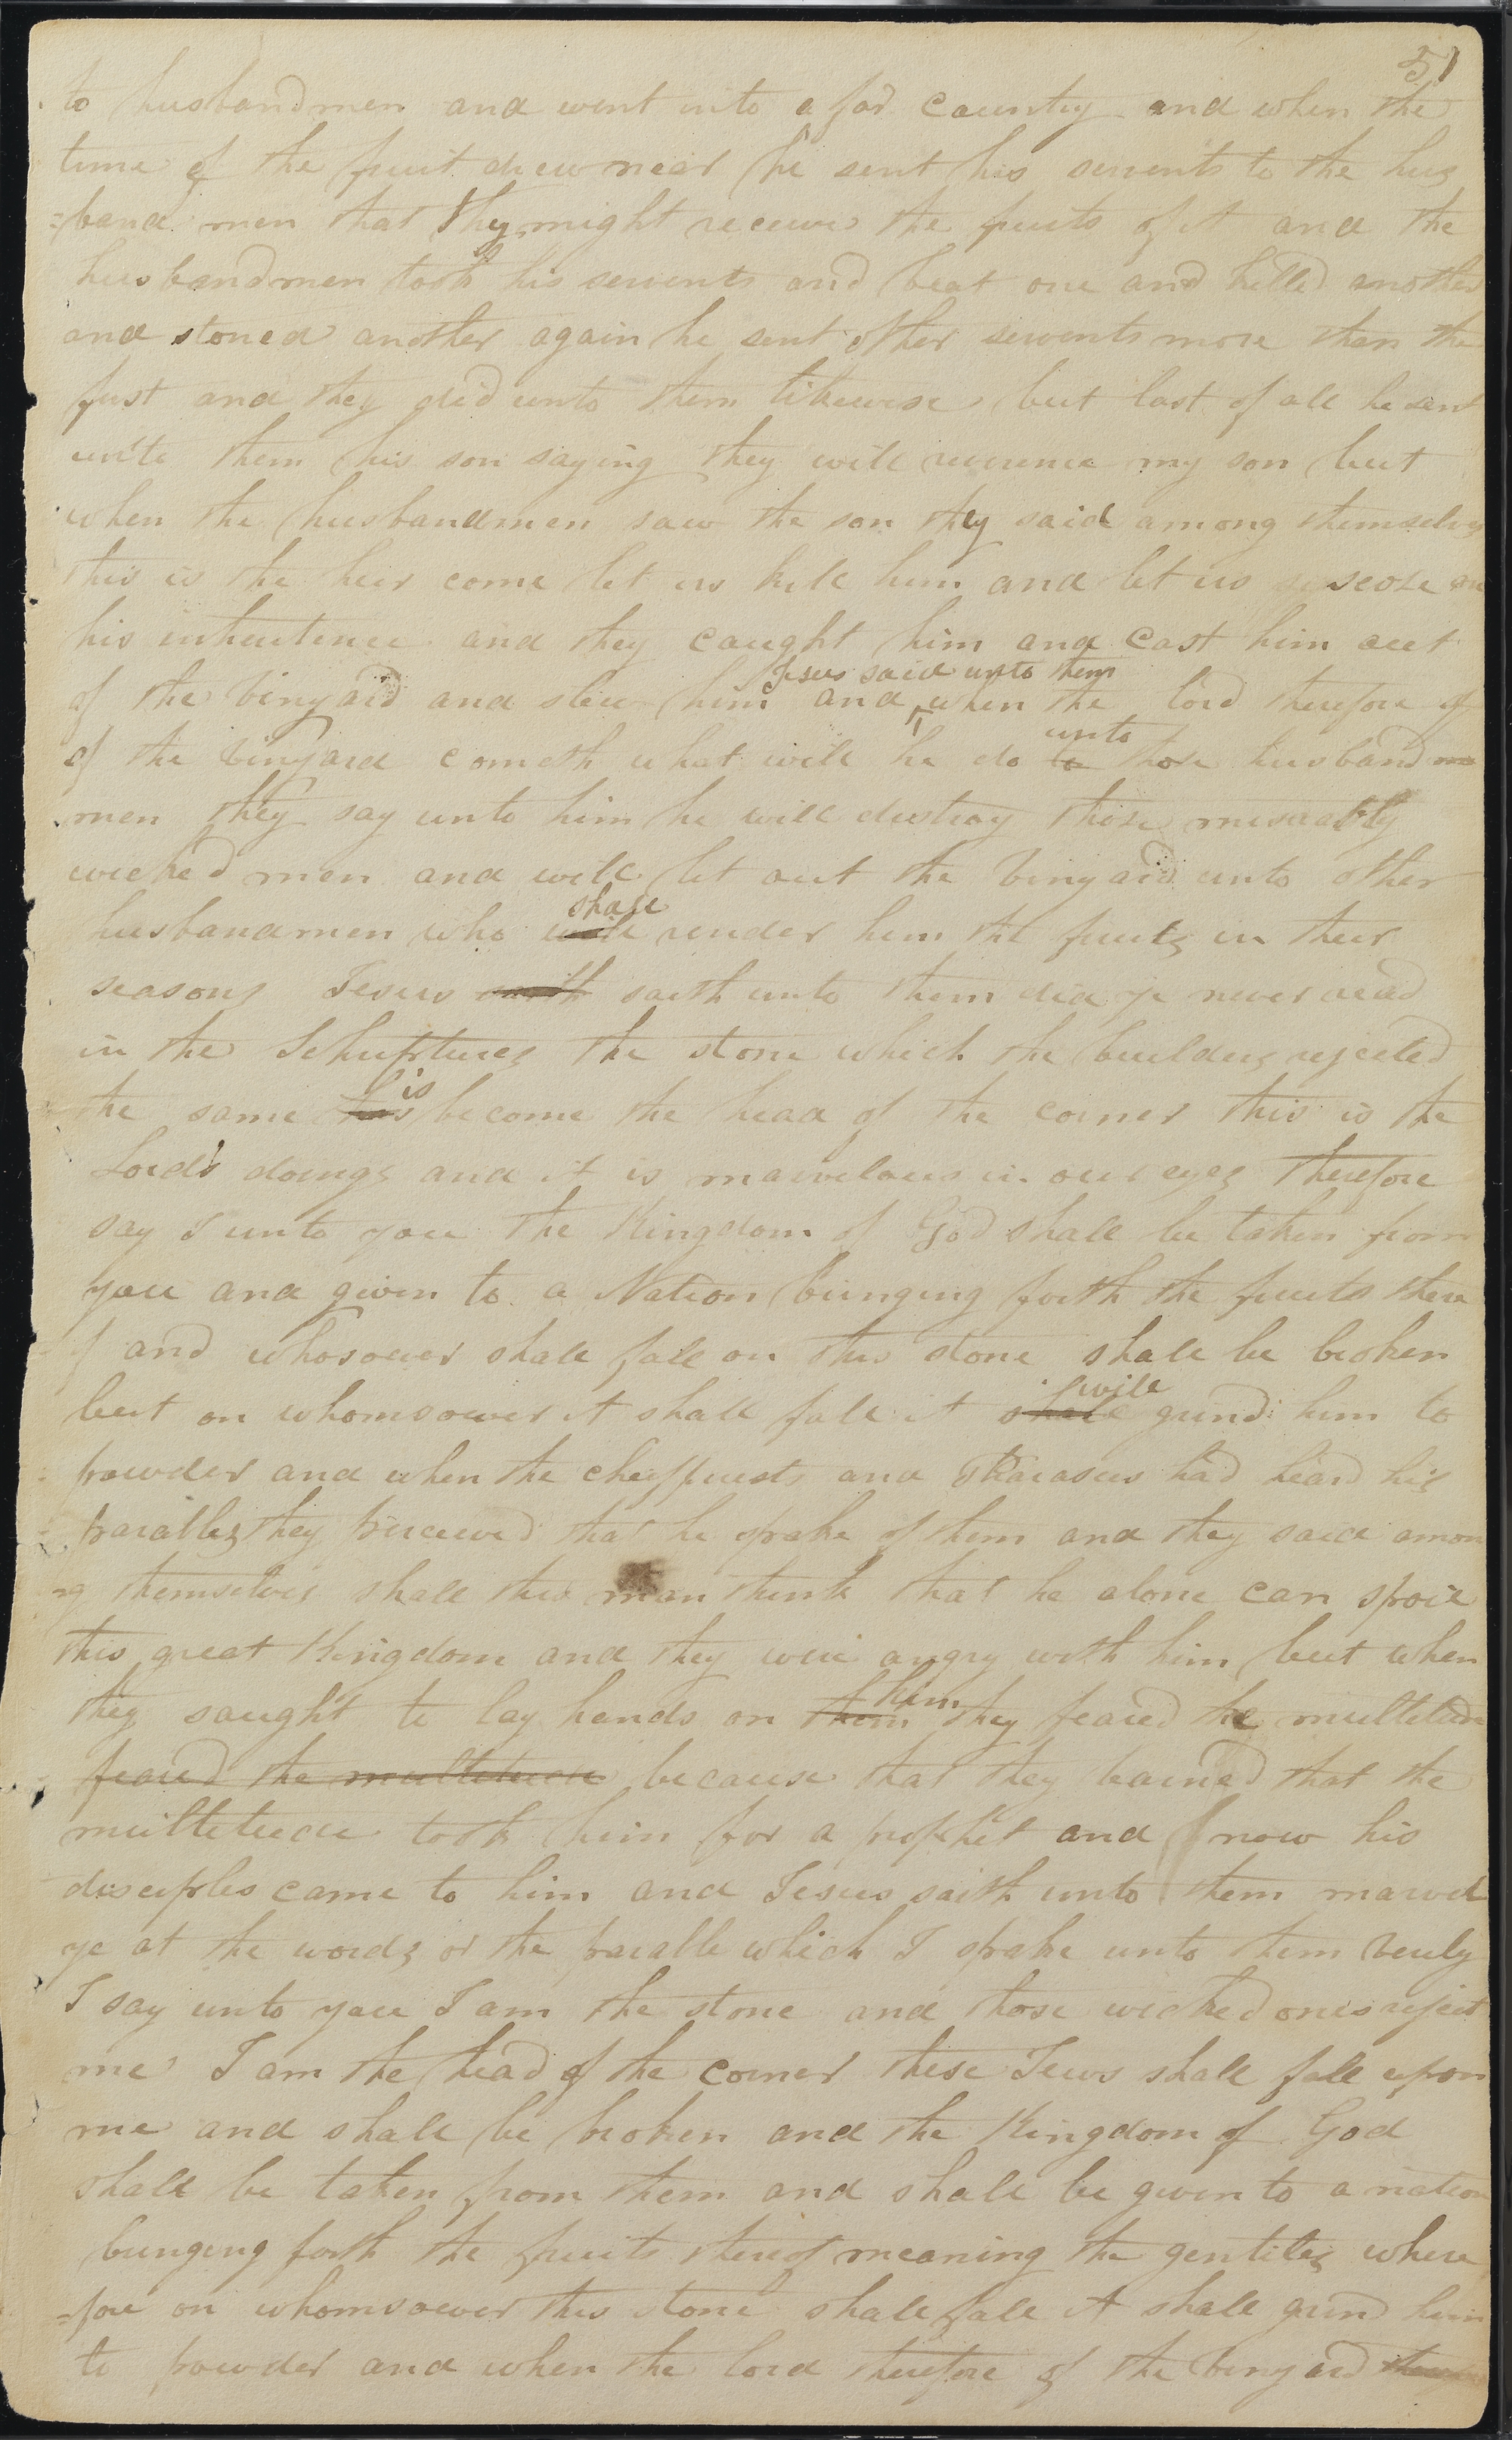 51
to husbandmen and went into a far Country and when the
time of the fruit drew near he sent his servents to the hus
=band men that they might receive the fruits of it and the
husbandmen took his servents and beat one and killed another
and stoned another again he sent other servents more than the
first and they did unto them likewise but last of all he sent
unto them his son saying they will reverence my son but
when the husbandmen saw the son they said among themselves
this is the heir come let us kill him and let us
his inheritence and they caught him and Cast him out
Jesus said unto them
of the vinyard and slew him and ^ when the lord therefore of
unto
of the vinyard cometh what will he do to those husband
men they say unto him he will destroy those miserably
wicked men and will let out the vinyard unto other
shall
husbandmen who will render him the fruits in their
seasons Jesus saith saith unto them did ye never read
in the Schriptures the stone which the builders rejected
is
the same has become the head of the corner this is the
Lord's doings and it is marvelous in our eyes therefore
say I unto you the Kingdom of God shall be taken from
you and given to a Nation bringing forth the fruits there
of and whosoever shall fall on this stone shall be broken
will
but on whomsoever it shall fall it shall grind him to
powder and when the cheifpriests and Pharasees had heard his
parables they perceived that he spake of them and they said amon
ng themselves shall this man think that he alone can spoil
this great Kingdom and they were angry with him but when
him
they saught to lay hands on them they feared the multitude
feared the multitude because that they learned that the
multitude took him for a prophet and now his
disciples came to him and Jesus saith unto them marvel
ye at the words of the parable which I spake unto them verily
I say unto you I am the stone and those wicked ones reject
me I am the head of the corner these Jews shall fall upon
me and shall be broken and the Kingdom of God
shall be taken from them and shall be given to a nation
bringing forth the fruits thereof meaning the gentiles where
=fore on whomsoever this stone shall fall it shall grind him
to powder and when the lord therefore of the vinyard